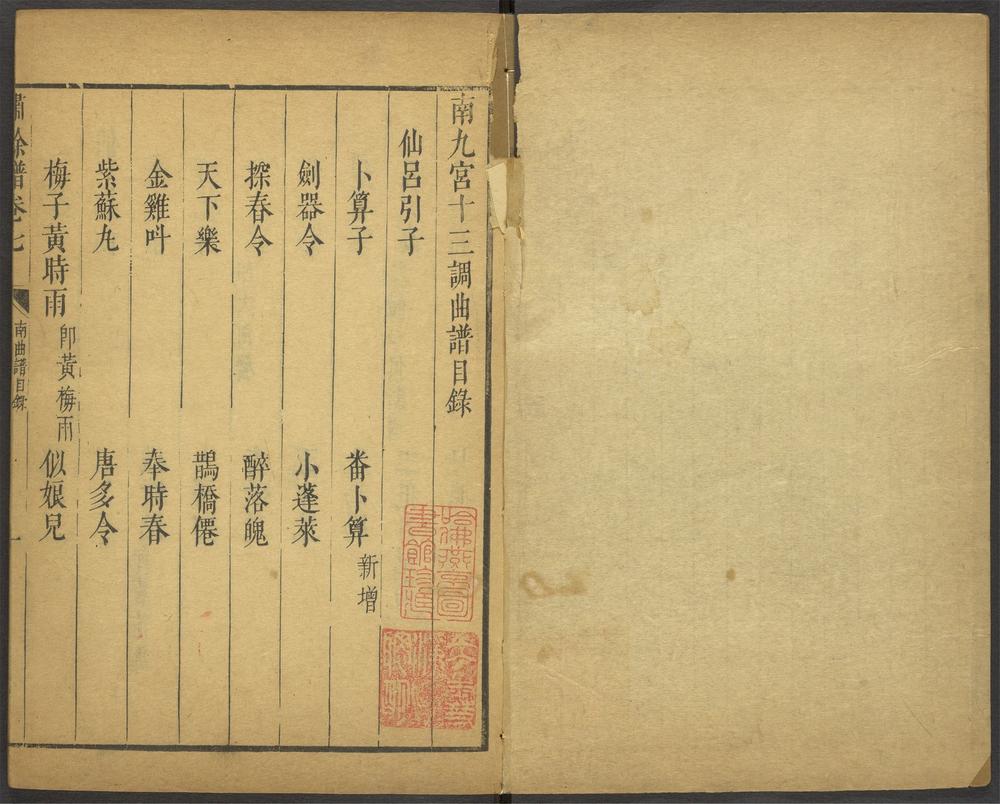 南九宮十三調曲譜目錄
仙呂引子
卜算子 番卜算 新增
劍器令 小蓬萊
探春令 醉落魄
天下樂 鵲橋僊
金雞呌 奉時春
紫蘇丸 唐多令
梅子黃時雨 卽黃梅雨 似娘兒
嘯餘譜卷七 南曲譜目錄 一
哈佛燕京圖書館珍藏